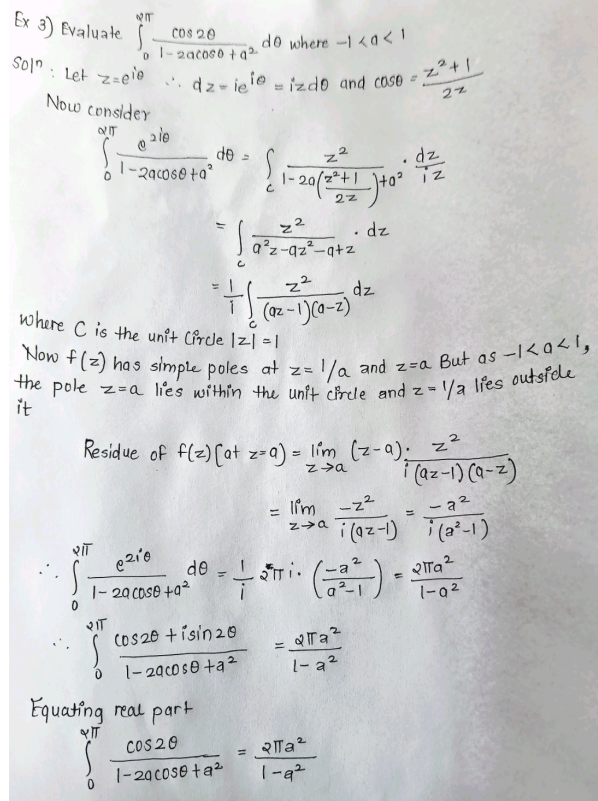 Ex 3) Evaluate ∫₀^2π cos 2θ / (1-2acosθ + a²) dθ where -1 < a < 1
Solⁿ : Let z = e^iθ ∴ dz = ie^iθ = izdθ and cosθ = (z²+1)/2z
Now consider
∫₀^2π e^2iθ / (1-2acosθ+a²) dθ = ∫_c z² / (1-2a((z²+1)/2z)+a²) · dz/iz
= ∫_c z² / (a²z-az²-a+z) · dz
= 1/i ∫_c z² / ((az-1)(a-z)) dz
where C is the unit circle |z| = 1
Now f(z) has simple poles at z = 1/a and z=a But as -1<a<1,
the pole z=a lies within the unit circle and z = 1/a lies outside
it
Residue of f(z) [at z=a) = lim_z→a (z-a) · z² / (i(az-1)(a-z))
= lim_z→a -z² / (i(az-1)) = -a² / (i(a²-1))
∴ ∫₀^2π e^2iθ / (1-2acosθ+a²) dθ = 1/i 2πi · (-a² / (a²-1)) = 2πa² / (1-a²)
∴ ∫₀^2π (cos2θ + isin2θ) / (1-2acosθ+a²) = 2πa² / (1-a²)
Equating real part
∫₀^2π cos2θ / (1-2acosθ+a²) = 2πa² / (1-a²)